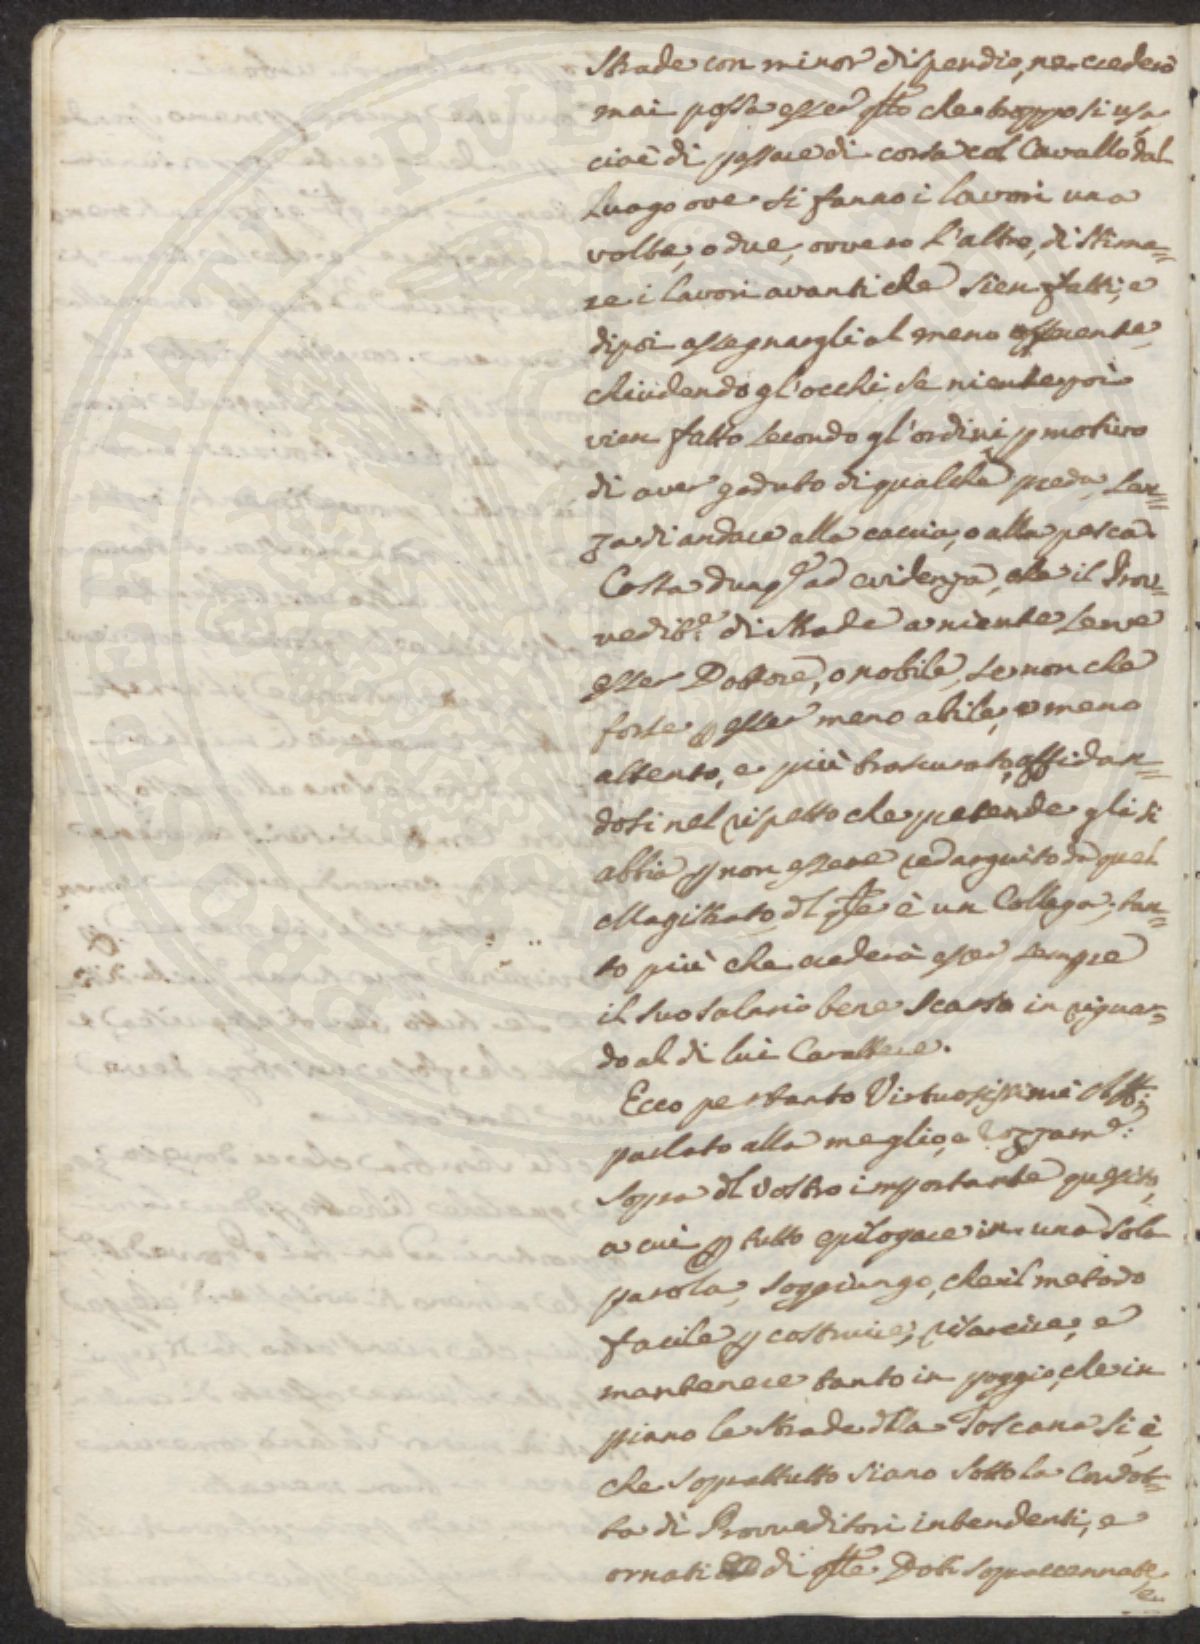 Strade con minor dispendio, ne crederò
mai possa esser qto che troppo si usa
cioè di passare di corsa col Cavallo dal
Luogo ove si fanno i lavori una
volta, o due, ovvero l'altro, di stima=
re i lavori avanti che sien fatti, e
dipoi assegnargli al meno
chiudendo gl'occhi se niente poi
vien fatto secondo gl'ordini p motivo
di aver goduto di qualche preda sen=
za di andare alla caccia, o alla pesca.
Costa dunqe ad evidenza, che il Prov=
vedit.e di Strade a niente serve
esser Dottore, o nobile, se non che
forse p esser meno abile, e meno
attento, e più trascurato, affidan=
dosi nel rispetto che pretende gli si
abbia p non essere redarguito da quel
Magistrato, dl qle è un Collega; tan=
to più che crederà esser sempre
il suo salario bene scarso in riguar=
do al di lui Carattere.
Ecco pertanto Virtuosissimi
parlato alla meglio, e rozzam.e:
sopra dl vostro importante quesito,
a cui p tutto epilogare in una sola
parola, soggiungo, che il metodo
facile p costruire, risarcire, e
mantenere tanto in poggio, che in
piano le strade dlla Toscana si è,
che soprattutto siano sotto la Condot=
ta di Provveditori intendenti, e
ornati di qlle Doti sopraccennate